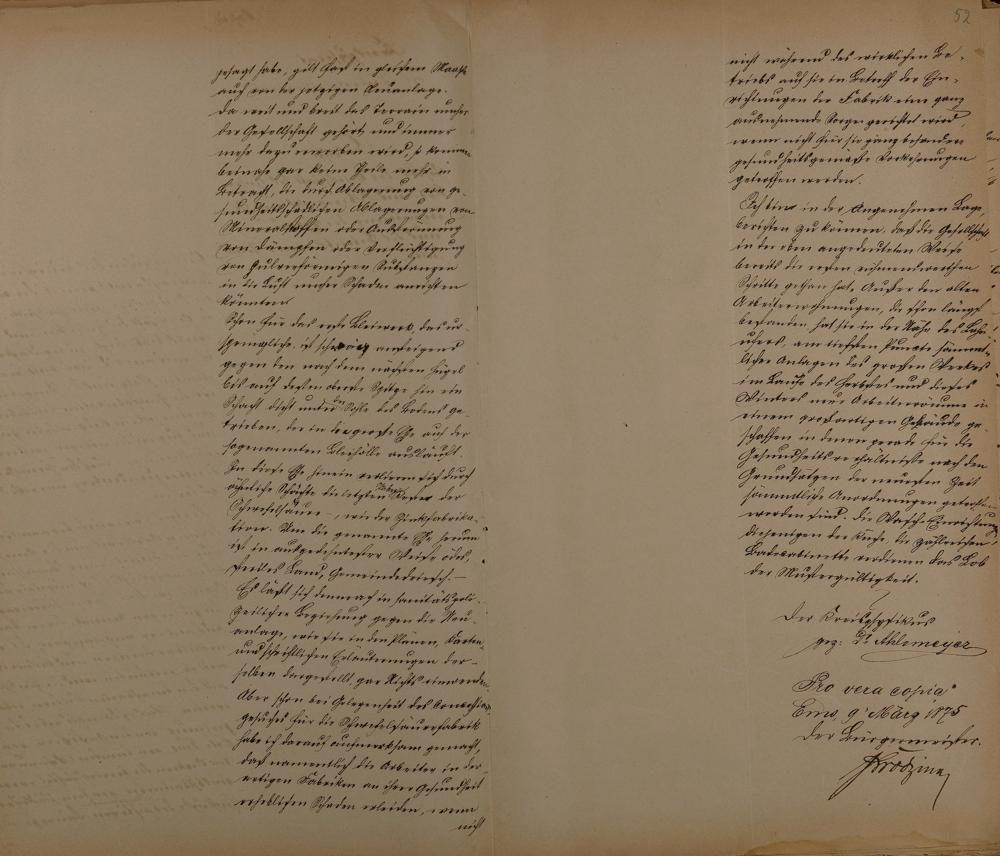 52
gesagt habe, gilt fast in gleichem Maaße
auch von der jetzigen Neuanlage.
Da weit und breit das Terrain umher
der Gesellschaft gehört und immer
mehr dazu erworben wird, so kommen
beinahe gar keine Theile mehr in
Betracht, die durch Ablagerung von ge-
sundheitsschädlichen Ablagerungen von
Mineralstoffen oder Ausströmung
von Dämpfen oder Verflüchtigung
von pulverförmigen Substanzen
in die Luft umher Schaden anrichten
könnten.
Schon für das erste Bleiwerk, das ur-
sprüngliche, ist schräg ansteigend
gegen den nach dem nächsten Hügel
bis auf dessen oberste Spitze hin ein
Schacht dicht unter der Sohle des Bodens ge-
trieben, der in die große Esse auf der
sogenannten Bleihölle ausläuft.
In diese Esse hinein verlieren sich durch
ähnliche Schächte die letzten Reste der
Schwefelsäure-, wie der Zinkfabrika-
tion. Um die genannte Esse herum
ist in ausgedehntester Weise ödes,
Land, Gemeindedriesch.–
Es läßt sich demnach in sanitätspoli-
zeilicher Beziehung gegen die Neu-
anlage, wie sie in den Plänen, Karten
und schriftlichen Erläuterungen der-
selben dargestellt, gar Nichts einwenden.
Aber schon bei Gelegenheit des Concessions-
gesuches für die Schwefelsäurefabrik
habe ich darauf aufmerksam gemacht,
daß namentlich die Arbeiter in der-
artigen Fabriken an ihrer Gesundheit
erheblichen Schaden erleiden, wenn
nicht
nicht während des wirklichen Be-
triebs auf sie in Betreff der Ein-
richtungen der Fabrik eine ganz
ausnehmende Sorge gerichtet wird,
wenn nicht für sie ganz besondere
gesundheitsgemäße Vorkehrungen
getroffen werden.
Ich bin in der angenehmen Lage,
berichten zu können, daß die Gesellschaft
in der oben angedeuteten Weise
bereits die ersten rühmenswerthen
Schritte gethan hat. Außer den alten
Arbeiterwohnungen, die schon längst
bestanden, hat sie in der Nähe des Lahn-
ufers, am tiefsten Puncte sämmt-
licher Anlagen des großen Werkes
im Laufe des Herbstes und dieses
Winters neue Arbeiterräume in
einem großartigen Gebäude ge-
schaffen in denen gerade für die
Gesundheitsverhältnisse nach den
Grundsätzen der neuesten Zeit
sämmtliche Anordnungen getroffen
worden sind. Die Wasch-Einrichtung,
diejenigen der Küche, die zahlreichen
Badecabinette verdienen das Lob
der Mustergültigkeit.
Der Kreisphysikus
gez: Dr Ahlemeyer
Pro vera copia
Ems, 9. März 1875
Der Bürgermeister.